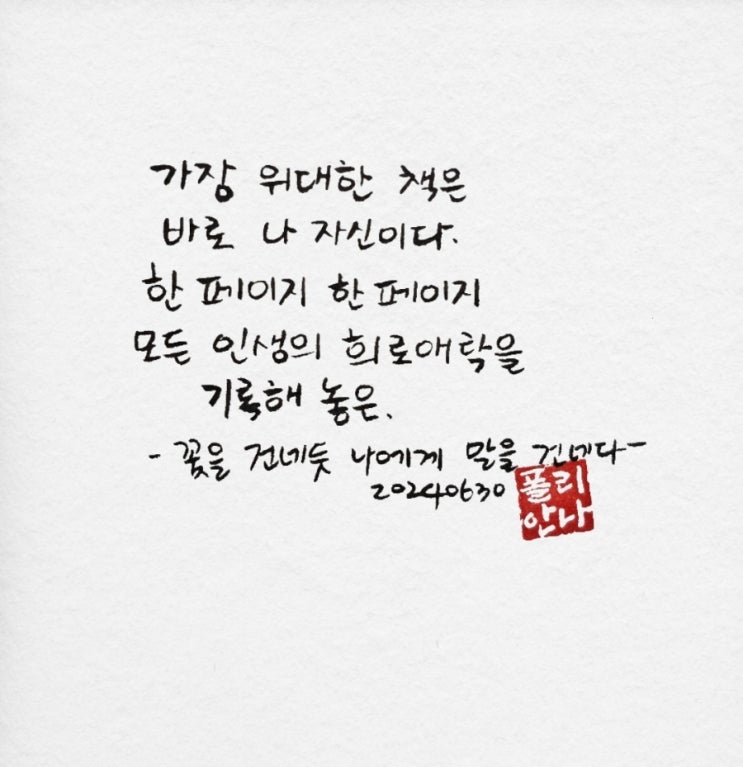 가장 위대한 책은
바로 나 자신이다.
한 페이지 한 페이지
모든 인생의 희로애락을
기록해 놓은.
- 꽃을 건네듯 나에게 말을 건네다-
20240630
폴리
안나